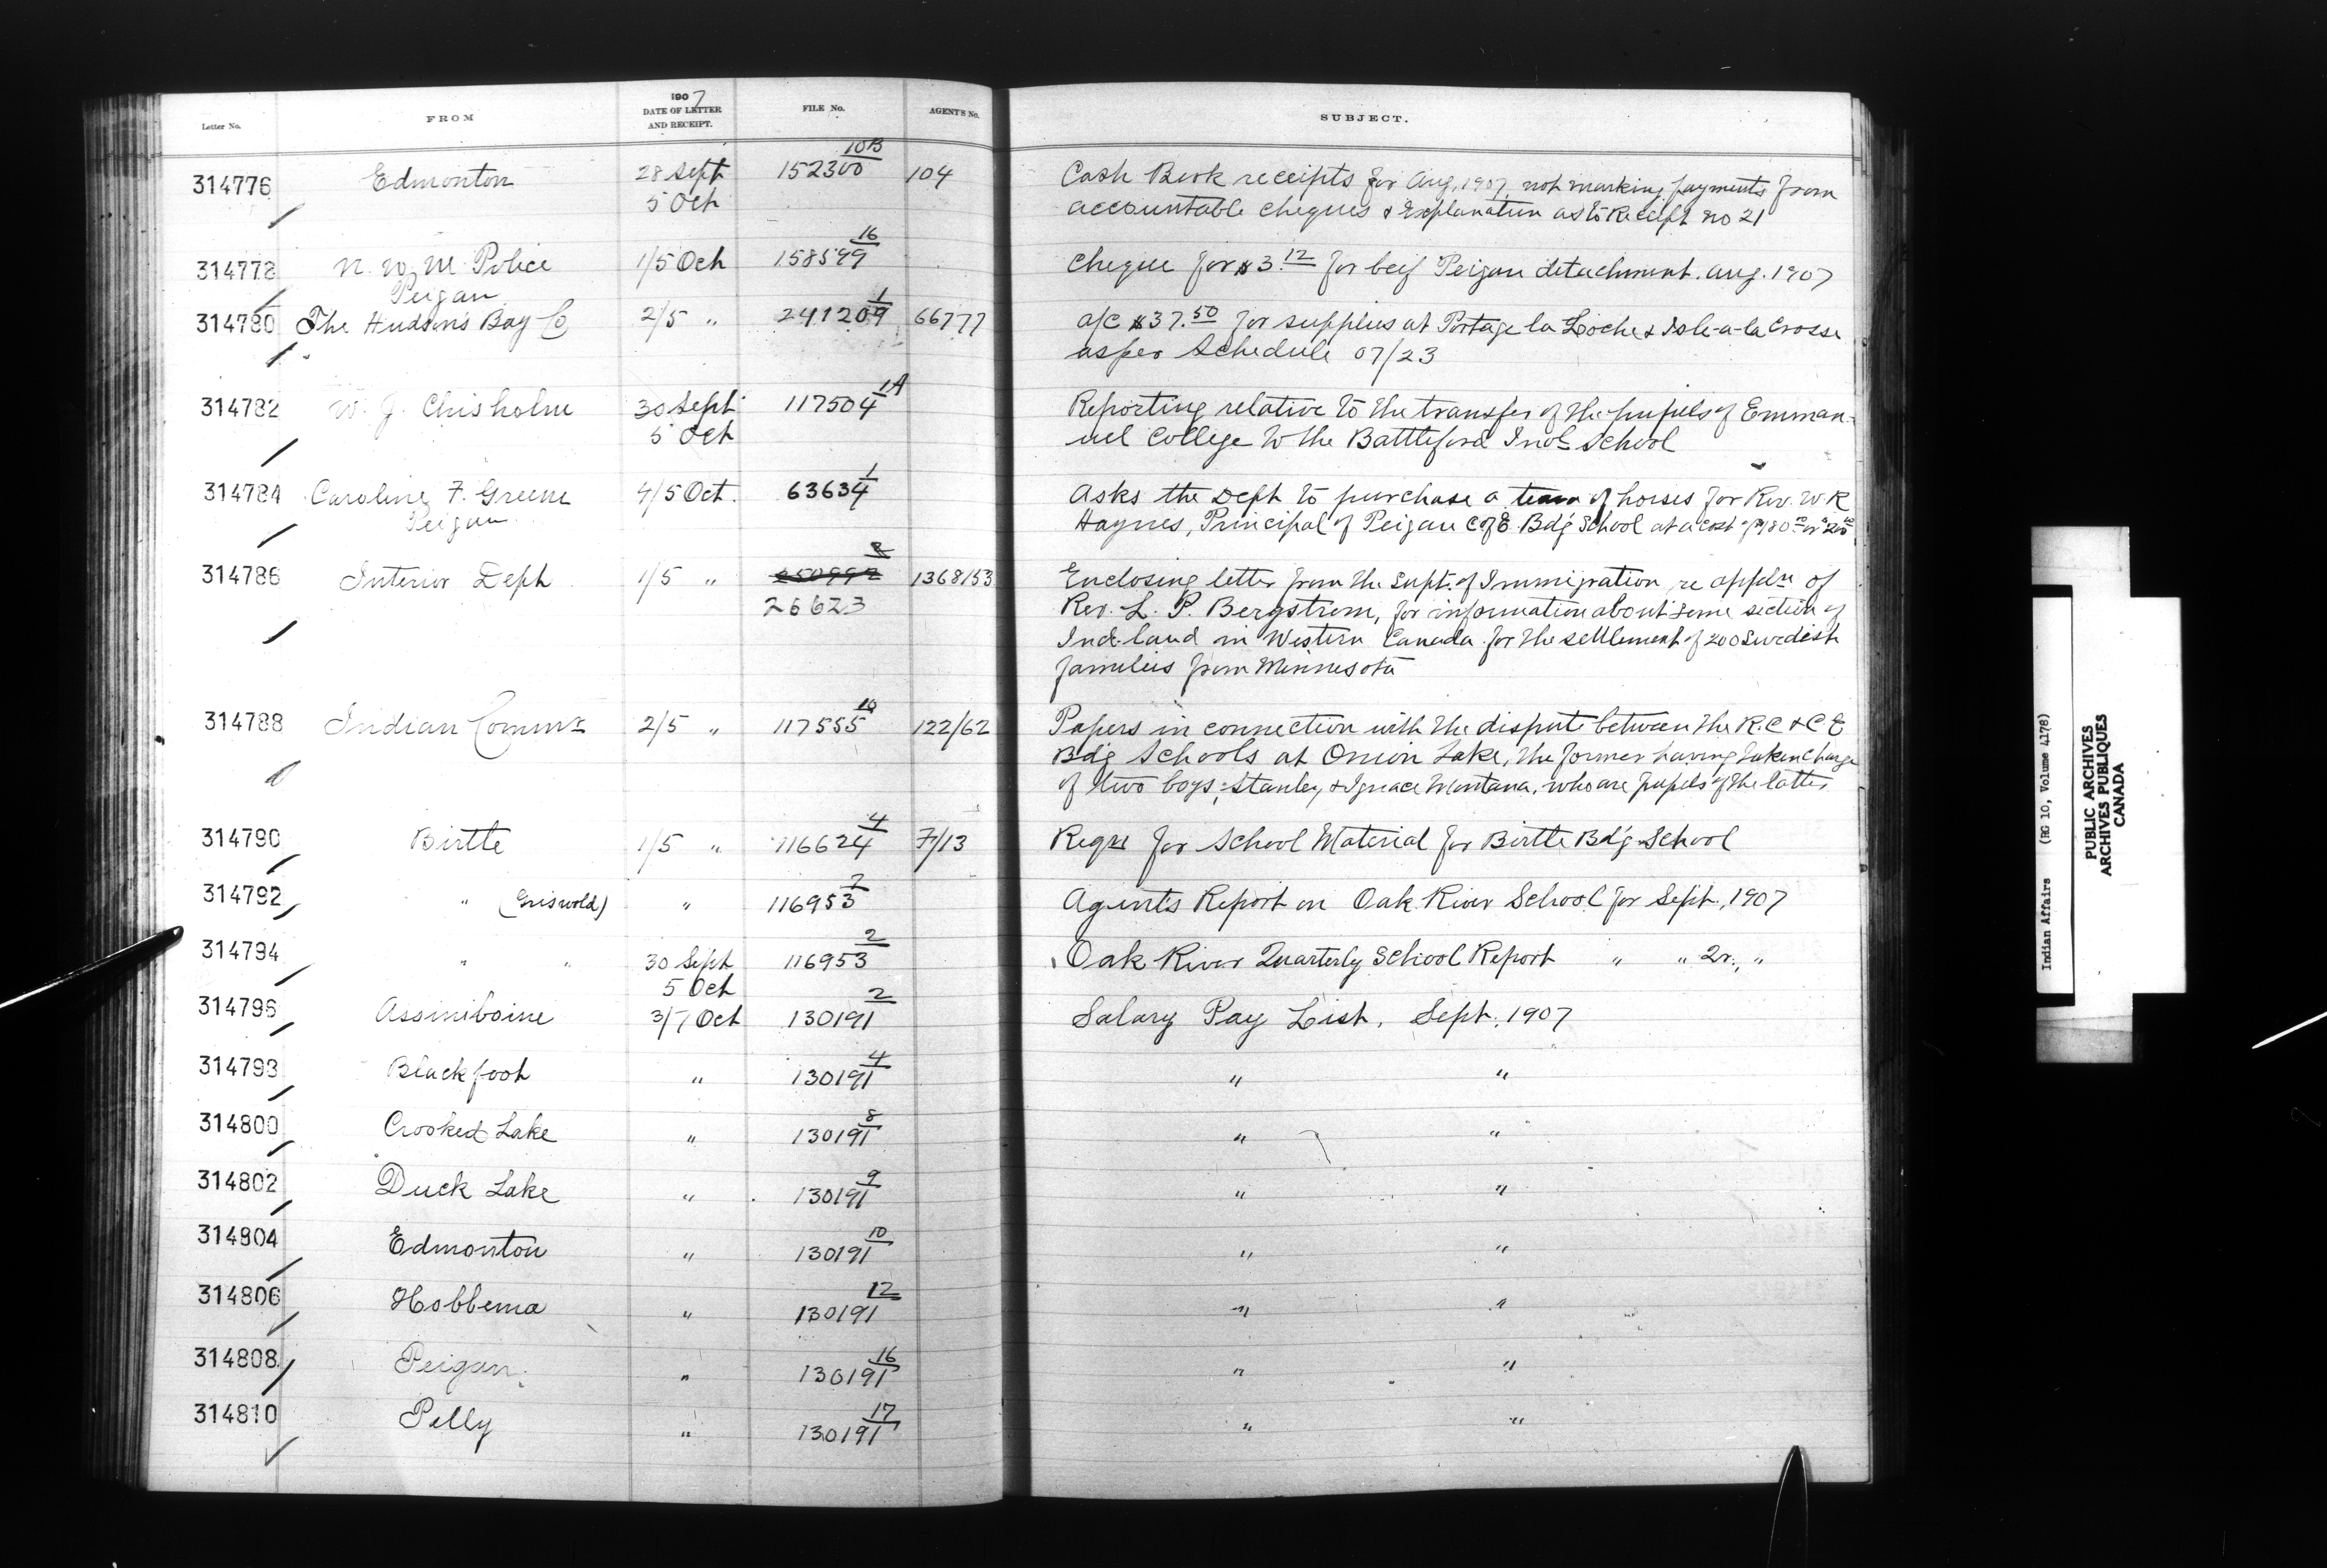 Letter No. FROM 1907 DATE OF LETTER AND RECEIPT. FILE No. AGENT'S No. SUBJECT.
314776 Edmonton 28 Sept 152300 10B 104 Cash Book receipts for Aug. 1907, not marking payments from
5 Oct accountable cheques & Explanation as to Receipt no 21
314778 N. W. M. Police 1/5 Oct 158599 16 Cheque for $3.12 for beef Peigan detachment. Aug. 1907
Peigan
314780 The Hudson's Bay Co 2/5 " 241209 1 66777 a/c $37.50 for supplies at Portage la Loche & Isle-a-la Crosse
as per Schedule 07/23
314782 W. J. Chisholm 30 Sept 117504 1A Reporting relative to the transfer of the pupils of Emman-
5 Oct uel College to the Battleford Indl School
314784 Caroline F. Greene 4/5 Oct. 63634 1 Asks the Dept to purchase a team of horses for Rev. W R
Peigan Haynes, Principal of Peigan C of E. Bd'g School at a cost of $180 or $200
314786 Interior Dept 1/5 " 250992 8 1368153 Enclosing letter from the Supt. of Immigration re appln of
26623 Rev. L. P. Bergstrom, for information about some section of
Ind. land in Western Canada for the settlement of 200 Swedish
families from Minnesota
314788 Indian Commr 2/5 " 117555 10 122/62 Papers in connection with the dispute between the R.C & C E
Bdg Schools at Onion Lake, the former having taken charge
of two boys, Stanley & Ignace Montana, who are pupils of the latter
314790 Birtle 1/5 " 116624 4 7/13 Reqn for School Material for Birtle Bd'g School
314792 " (Griswold) " 116953 2 Agent's Report on Oak River School for Sept., 1907
314794 " " 30 Sept 116953 2 Oak River Quarterly School Report " " 2r., "
5 Oct
314796 Assiniboine 3/7 Oct 130191 2 Salary Pay List, Sept. 1907
314798 Blackfoot " 130191 4 " "
314800 Crooked Lake " 130191 8 " "
314802 Duck Lake " 130191 9 " "
314804 Edmonton " 130191 10 " "
314806 Hobbema " 130191 12 " "
314808 Peigan " 130191 16 " "
314810 Pelly " 130191 17 " "
Indian Affairs (RG 10, Volume 4178)
PUBLIC ARCHIVES
ARCHIVES PUBLIQUES
CANADA